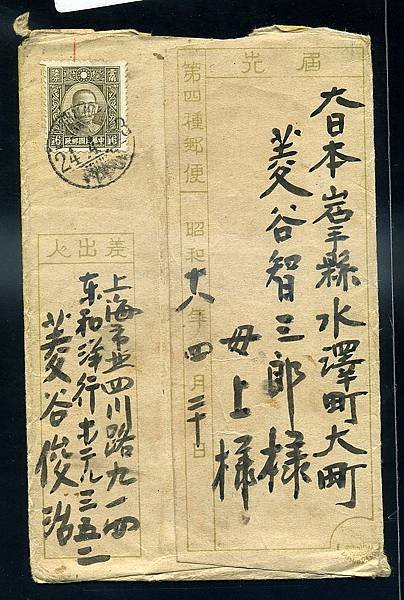 届先
大日本岩手縣水澤町大町
菱谷智三郎様
母上様
第四種郵便 昭和十八年四月二十日
差出人
上海市北四川路九一四
东和洋行ホテル三五二
菱谷俊治
16 中華民國郵政 16
24